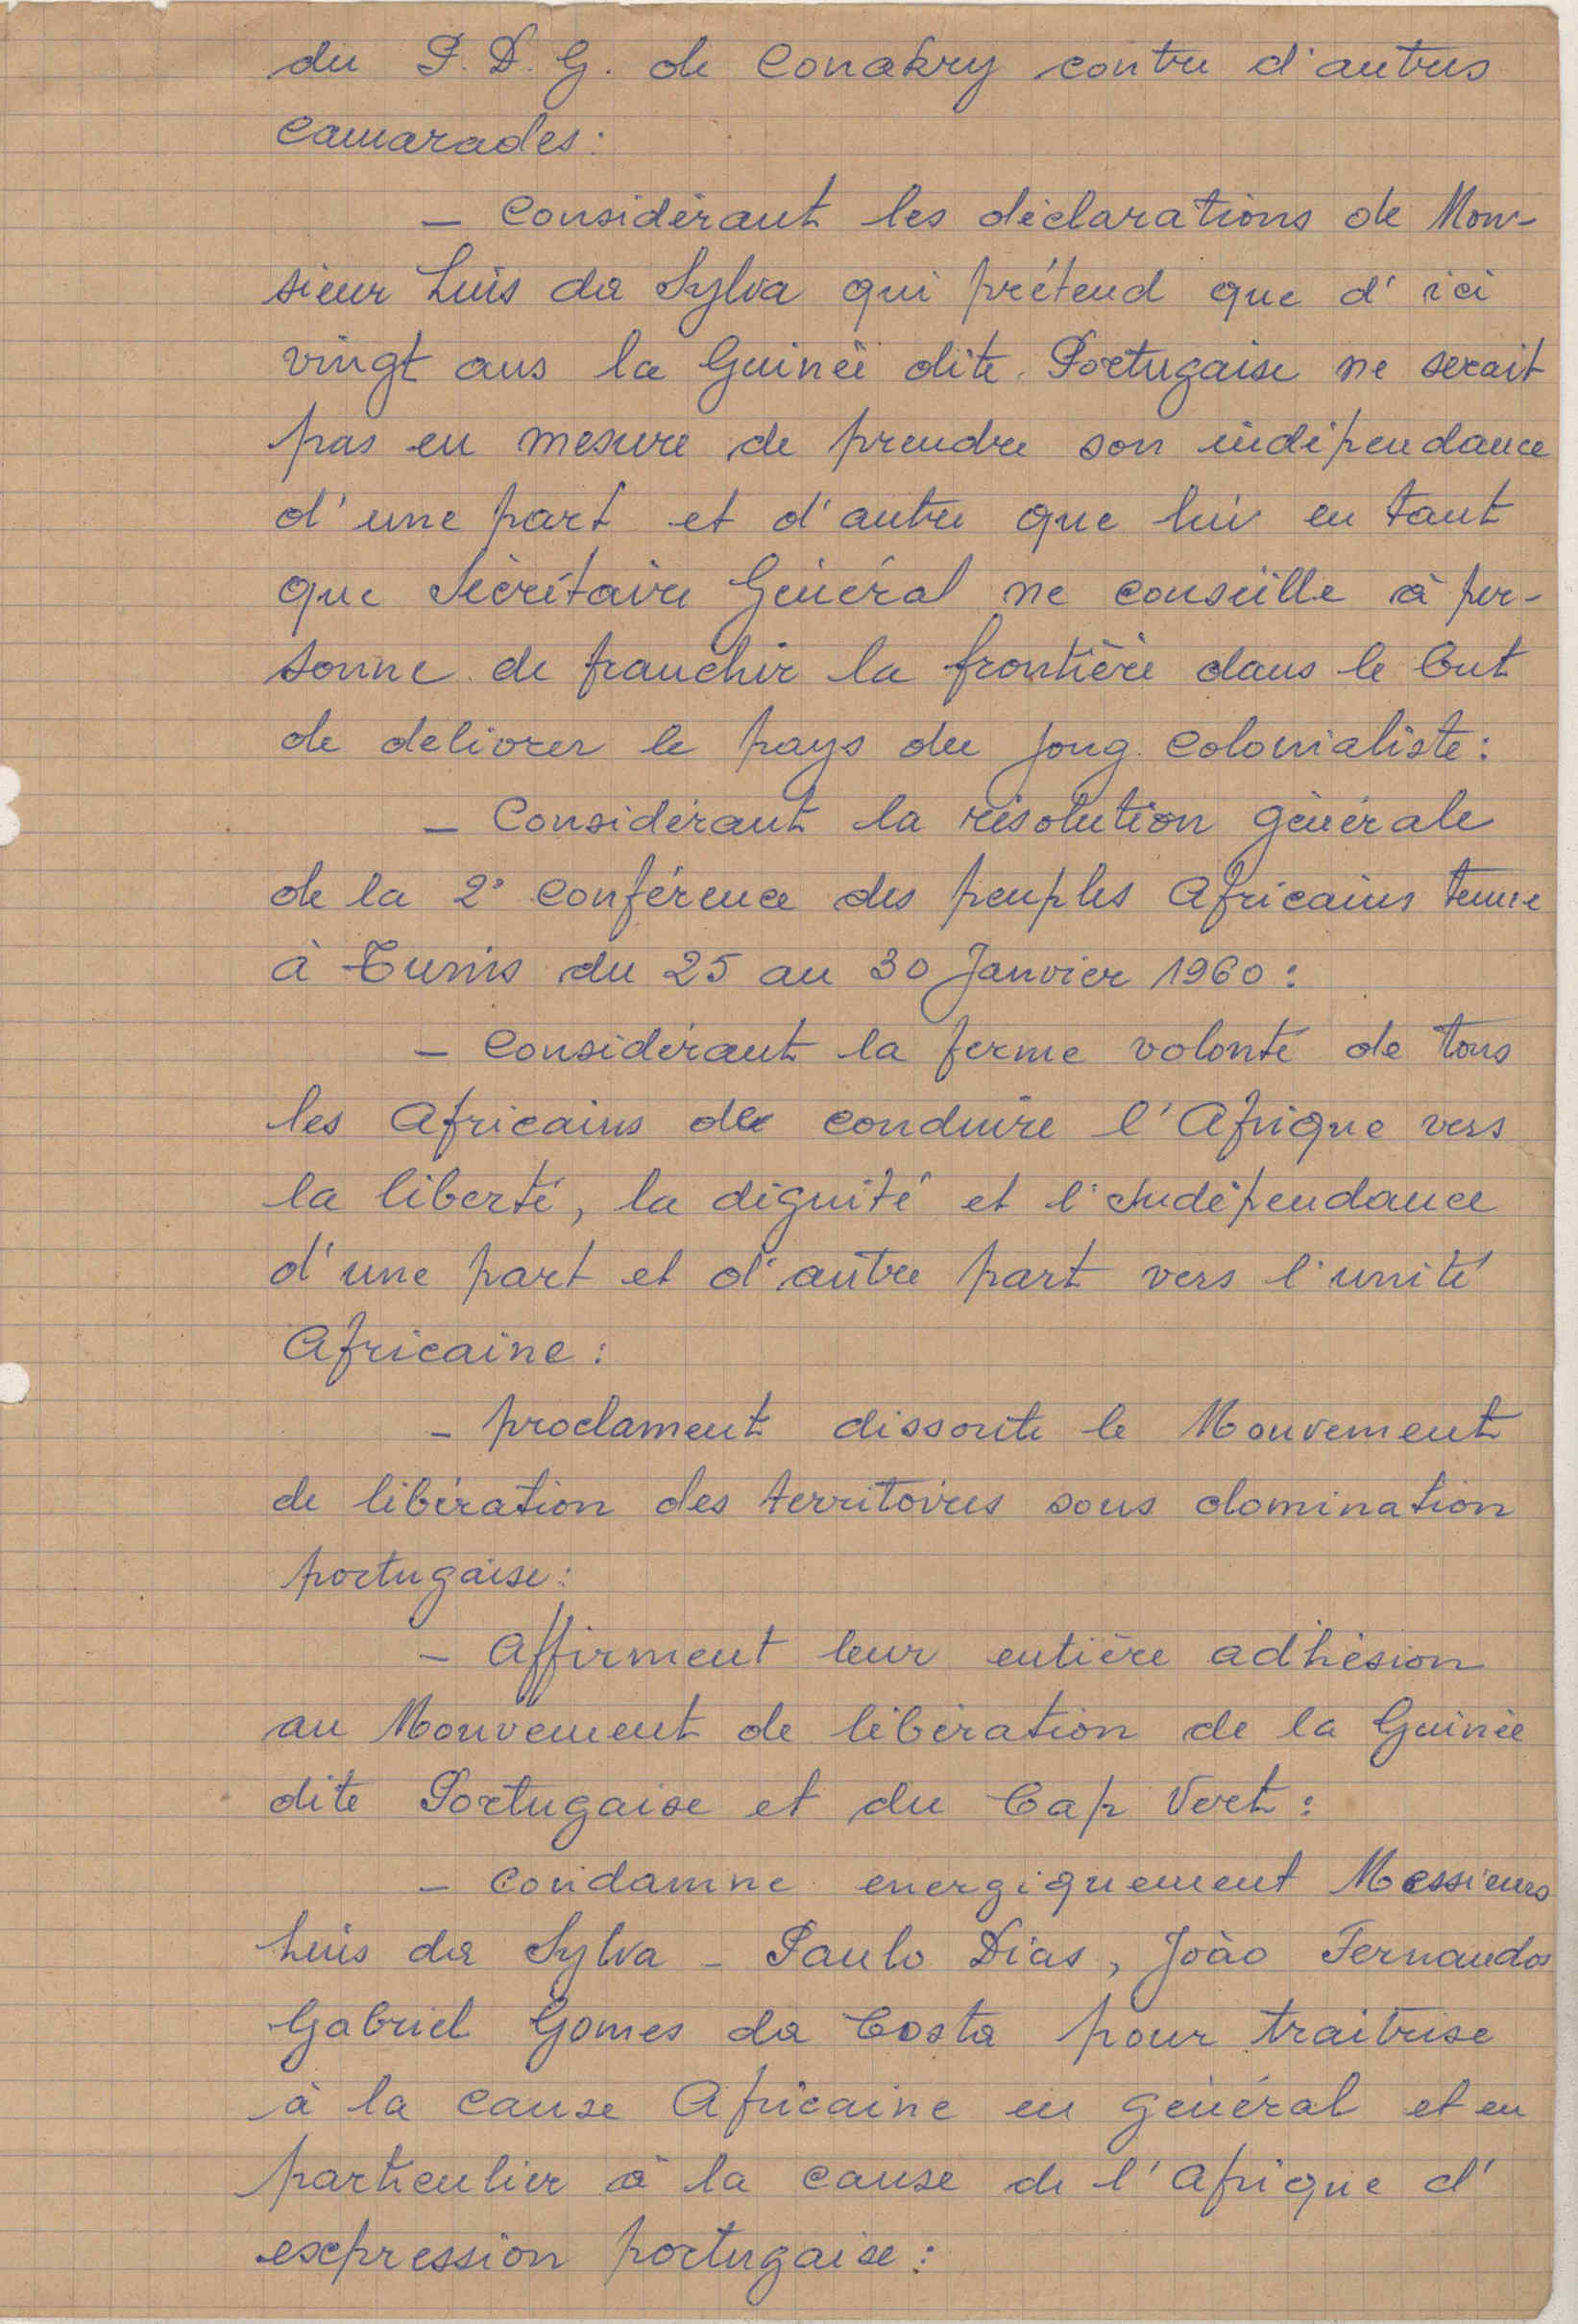 du P. D. G. de Conakry contre d'autres
camarades:
– Considérant les déclarations de Mon-
sieur Luis da Sylva qui prétend que d'ici
vingt ans la Guinée dite Portugaise ne serait
pas en mesure de prendre son indépendance
d'une part et d'autre que lui en tant
que Sécrétaire Général ne conseille à per-
sonne de franchir la frontière dans le but
de delivrer le pays du joug colonialiste:
– Considérant la résolution générale
de la 2e conférence des peuples Africains tenue
à Tunis du 25 au 30 Janvier 1960:
– Considérant la ferme volonté de tous
les Africains de conduire l'Afrique vers
la liberté, la dignité et l'Indépendance
d'une part et d'autre part vers l'unité
Africaine:
– proclament dissoute le Mouvement
de libération des territoires sous domination
portugaise:
– Affirment leur entière adhésion
au Mouvement de libération de la Guinée
dite Portugaise et du Cap Vert:
– Condamne energiquement Messieurs
Luis da Sylva – Paulo Dias, João Fernandos
Gabriel Gomes da Costa pour traitrise
à la cause Africaine en général et en
particulier à la cause de l'Afrique d'
expression portugaise: